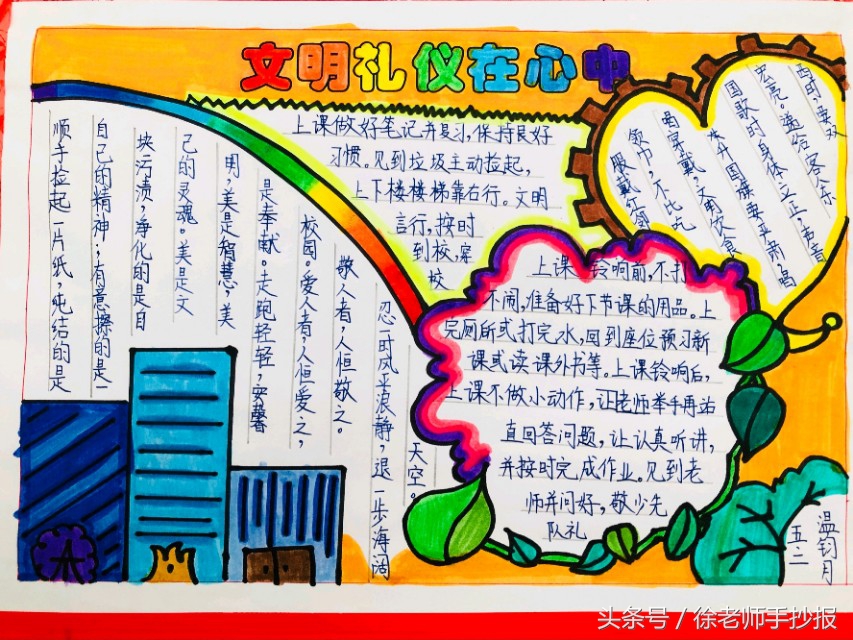 文明礼仪在心中
顺手捡起一片纸，纯结的是
自己的精神；有意擦的是一
块污渍，净化的是自
己的灵魂。美是文
明，美是智慧，美
是奉献。走跑轻轻，安馨
校园。爱人者，人恒爱之，
敬人者，人恒敬之。
忍一时风平浪静，退一步海阔
天空。
上课做好笔记并复习，保持良好
习惯。见到垃圾主动捡起，
上下楼楼梯靠右行。文明
言行，按时
到校，穿
校
服戴红领
领巾，不比吃
喝穿戴，文明饮食
升国旗要严肃，唱
国歌时身体立正，声音
宏亮。遇给客人东
西时，要双
上课铃响前，不打
不闹，准备好下节课的用品。上
完厕所或打完水，回到座位预习新
课或读课外书等。上课铃响后，
上课不做小动作，让老师举手再站
直回答问题，让认真听讲，
并按时完成作业。见到老
师并问好，敬少先
队礼
五二
温钧月
头条号 / 徐老师手抄报